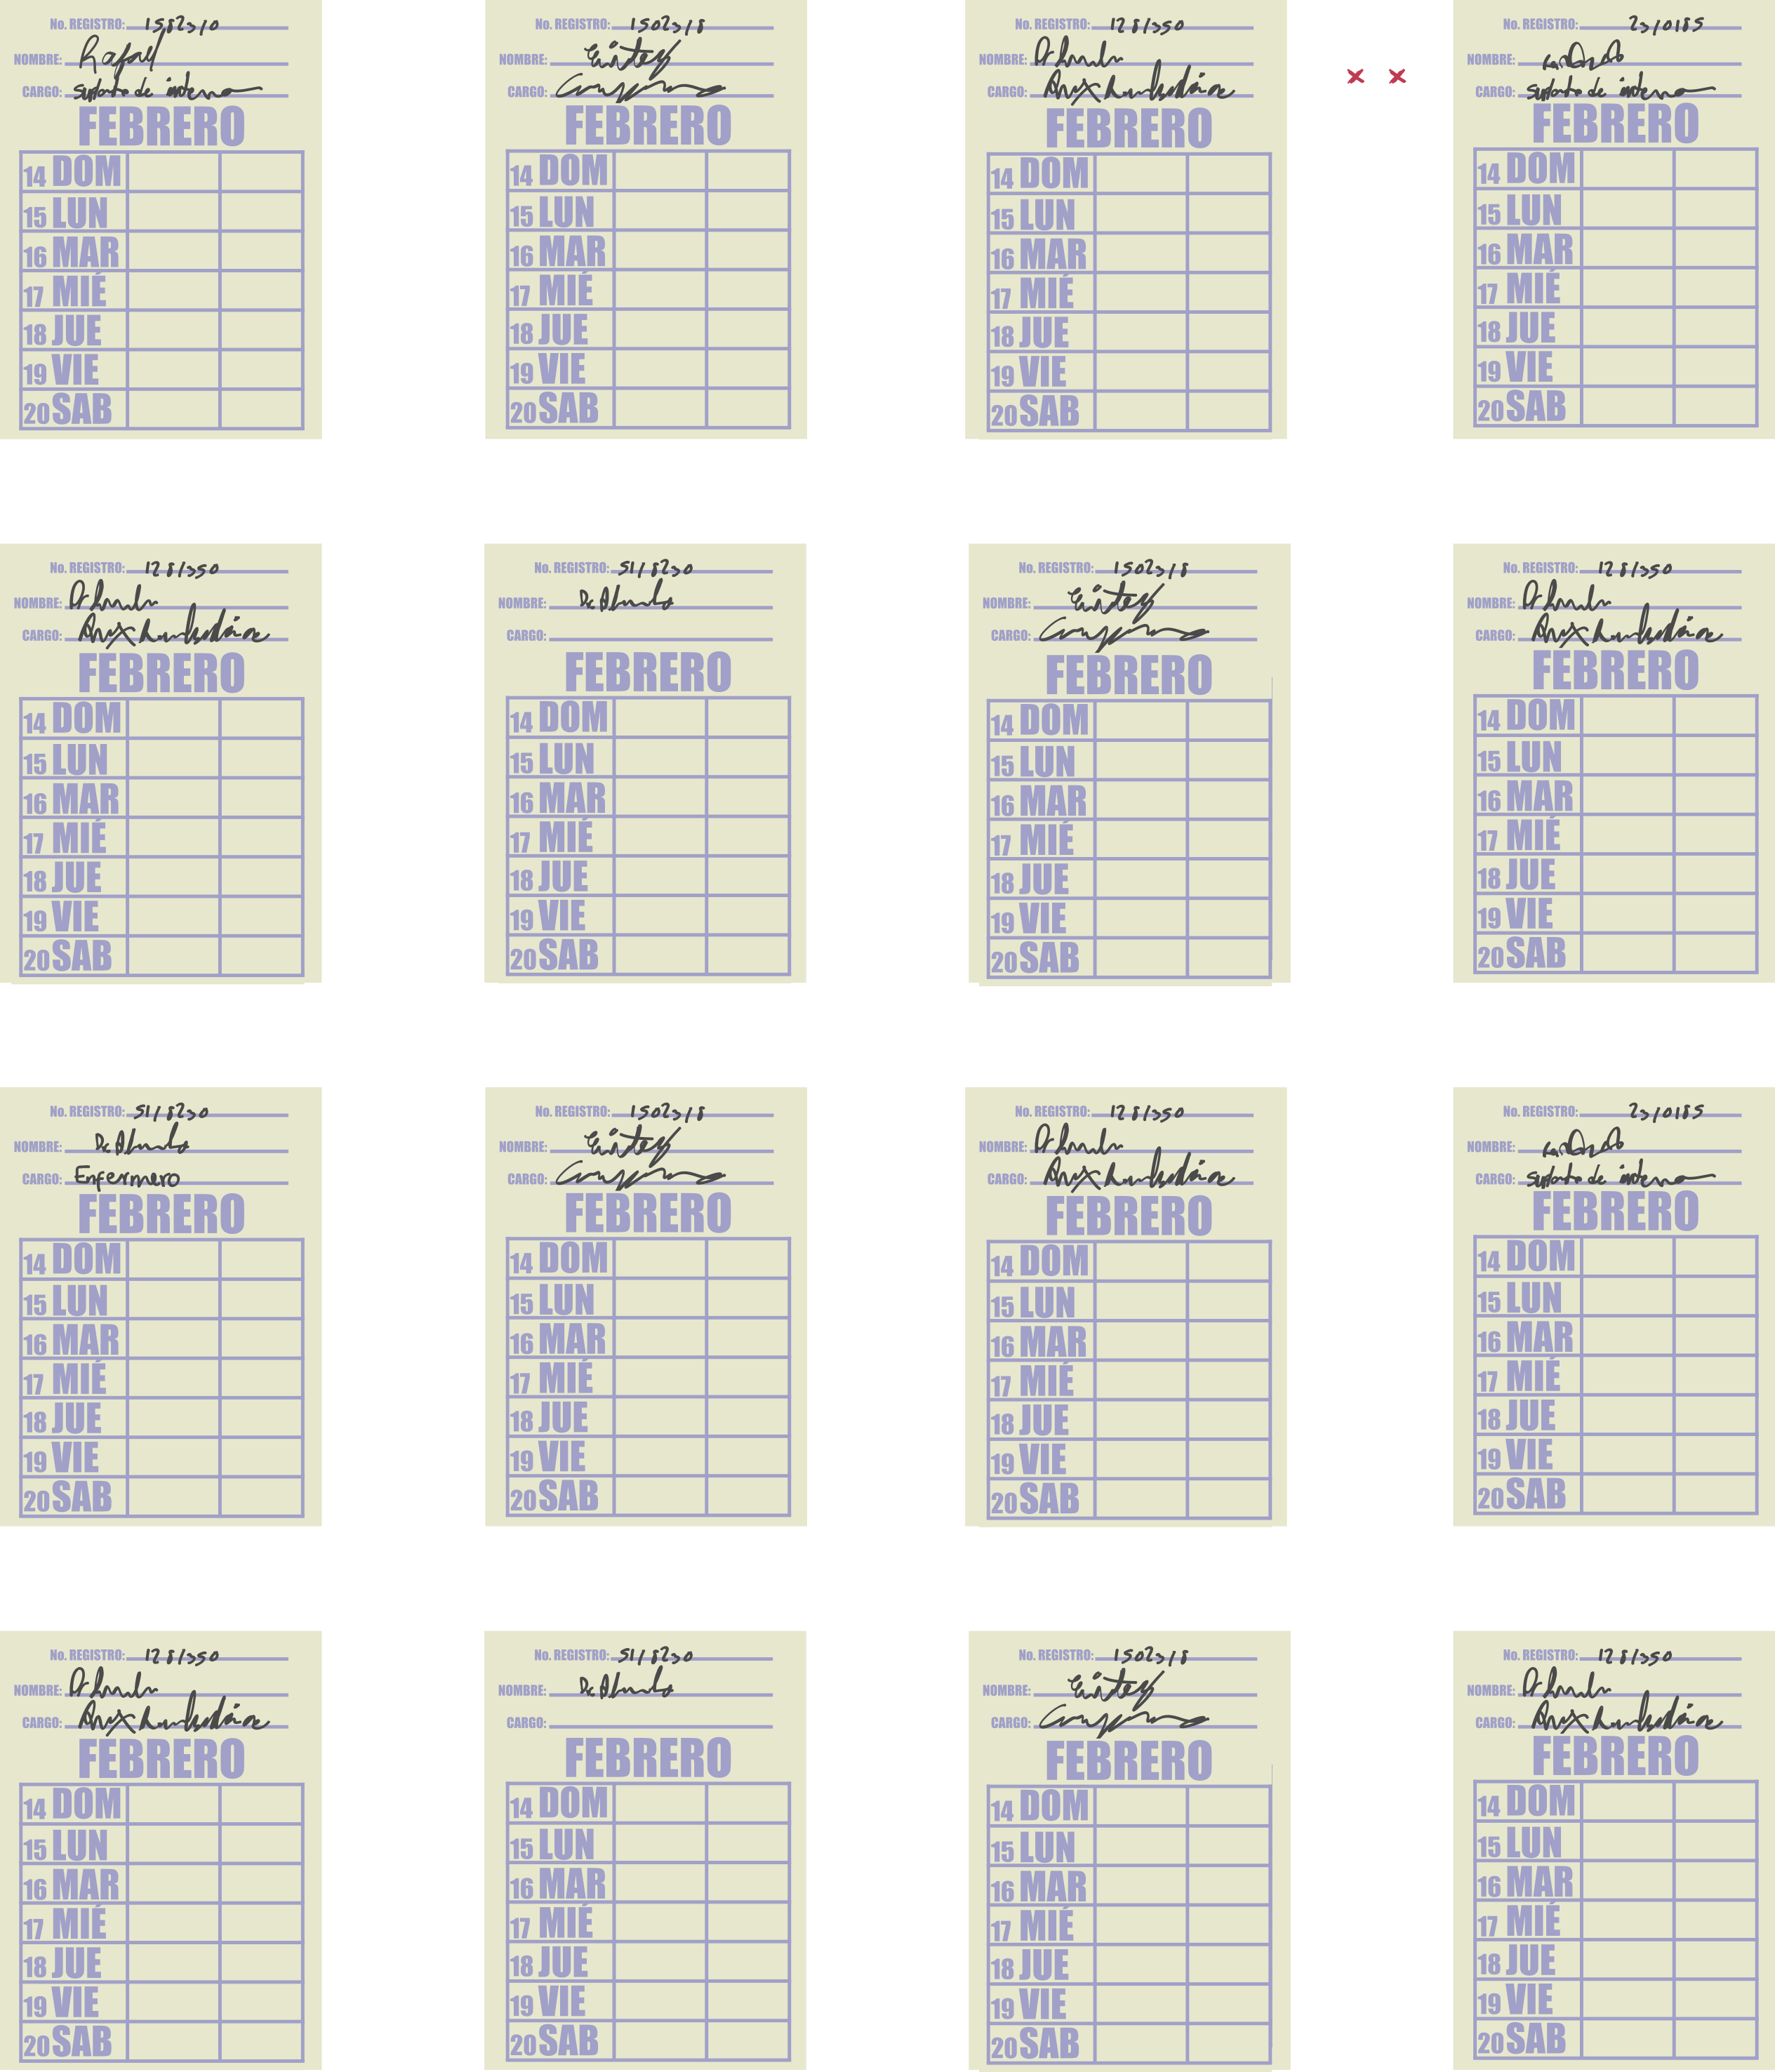 No. REGISTRO: 1582310
NOMBRE: Rafael
CARGO: de
FEBRERO
14 DOM
15 LUN
16 MAR
17 MIÉ
18 JUE
19 VIE
20 SAB
No. REGISTRO: 1502318
NOMBRE:
CARGO:
FEBRERO
14 DOM
15 LUN
16 MAR
17 MIÉ
18 JUE
19 VIE
20 SAB
No. REGISTRO: 1281350
NOMBRE:
CARGO:
FEBRERO
14 DOM
15 LUN
16 MAR
17 MIÉ
18 JUE
19 VIE
20 SAB
No. REGISTRO: 2310185
NOMBRE:
CARGO: de
FEBRERO
14 DOM
15 LUN
16 MAR
17 MIÉ
18 JUE
19 VIE
20 SAB
No. REGISTRO: 1281350
NOMBRE:
CARGO:
FEBRERO
14 DOM
15 LUN
16 MAR
17 MIÉ
18 JUE
19 VIE
20 SAB
No. REGISTRO: 5118230
NOMBRE:
CARGO:
FEBRERO
14 DOM
15 LUN
16 MAR
17 MIÉ
18 JUE
19 VIE
20 SAB
No. REGISTRO: 1502318
NOMBRE:
CARGO:
FEBRERO
14 DOM
15 LUN
16 MAR
17 MIÉ
18 JUE
19 VIE
20 SAB
No. REGISTRO: 1281350
NOMBRE:
CARGO:
FEBRERO
14 DOM
15 LUN
16 MAR
17 MIÉ
18 JUE
19 VIE
20 SAB
No. REGISTRO: 5118230
NOMBRE:
CARGO: Enfermero
FEBRERO
14 DOM
15 LUN
16 MAR
17 MIÉ
18 JUE
19 VIE
20 SAB
No. REGISTRO: 1502318
NOMBRE:
CARGO:
FEBRERO
14 DOM
15 LUN
16 MAR
17 MIÉ
18 JUE
19 VIE
20 SAB
No. REGISTRO: 1281350
NOMBRE:
CARGO:
FEBRERO
14 DOM
15 LUN
16 MAR
17 MIÉ
18 JUE
19 VIE
20 SAB
No. REGISTRO: 2310185
NOMBRE:
CARGO: de
FEBRERO
14 DOM
15 LUN
16 MAR
17 MIÉ
18 JUE
19 VIE
20 SAB
No. REGISTRO: 1281350
NOMBRE:
CARGO:
FEBRERO
14 DOM
15 LUN
16 MAR
17 MIÉ
18 JUE
19 VIE
20 SAB
No. REGISTRO: 5118230
NOMBRE:
CARGO:
FEBRERO
14 DOM
15 LUN
16 MAR
17 MIÉ
18 JUE
19 VIE
20 SAB
No. REGISTRO: 1502318
NOMBRE:
CARGO:
FEBRERO
14 DOM
15 LUN
16 MAR
17 MIÉ
18 JUE
19 VIE
20 SAB
No. REGISTRO: 1281350
NOMBRE:
CARGO:
FEBRERO
14 DOM
15 LUN
16 MAR
17 MIÉ
18 JUE
19 VIE
20 SAB